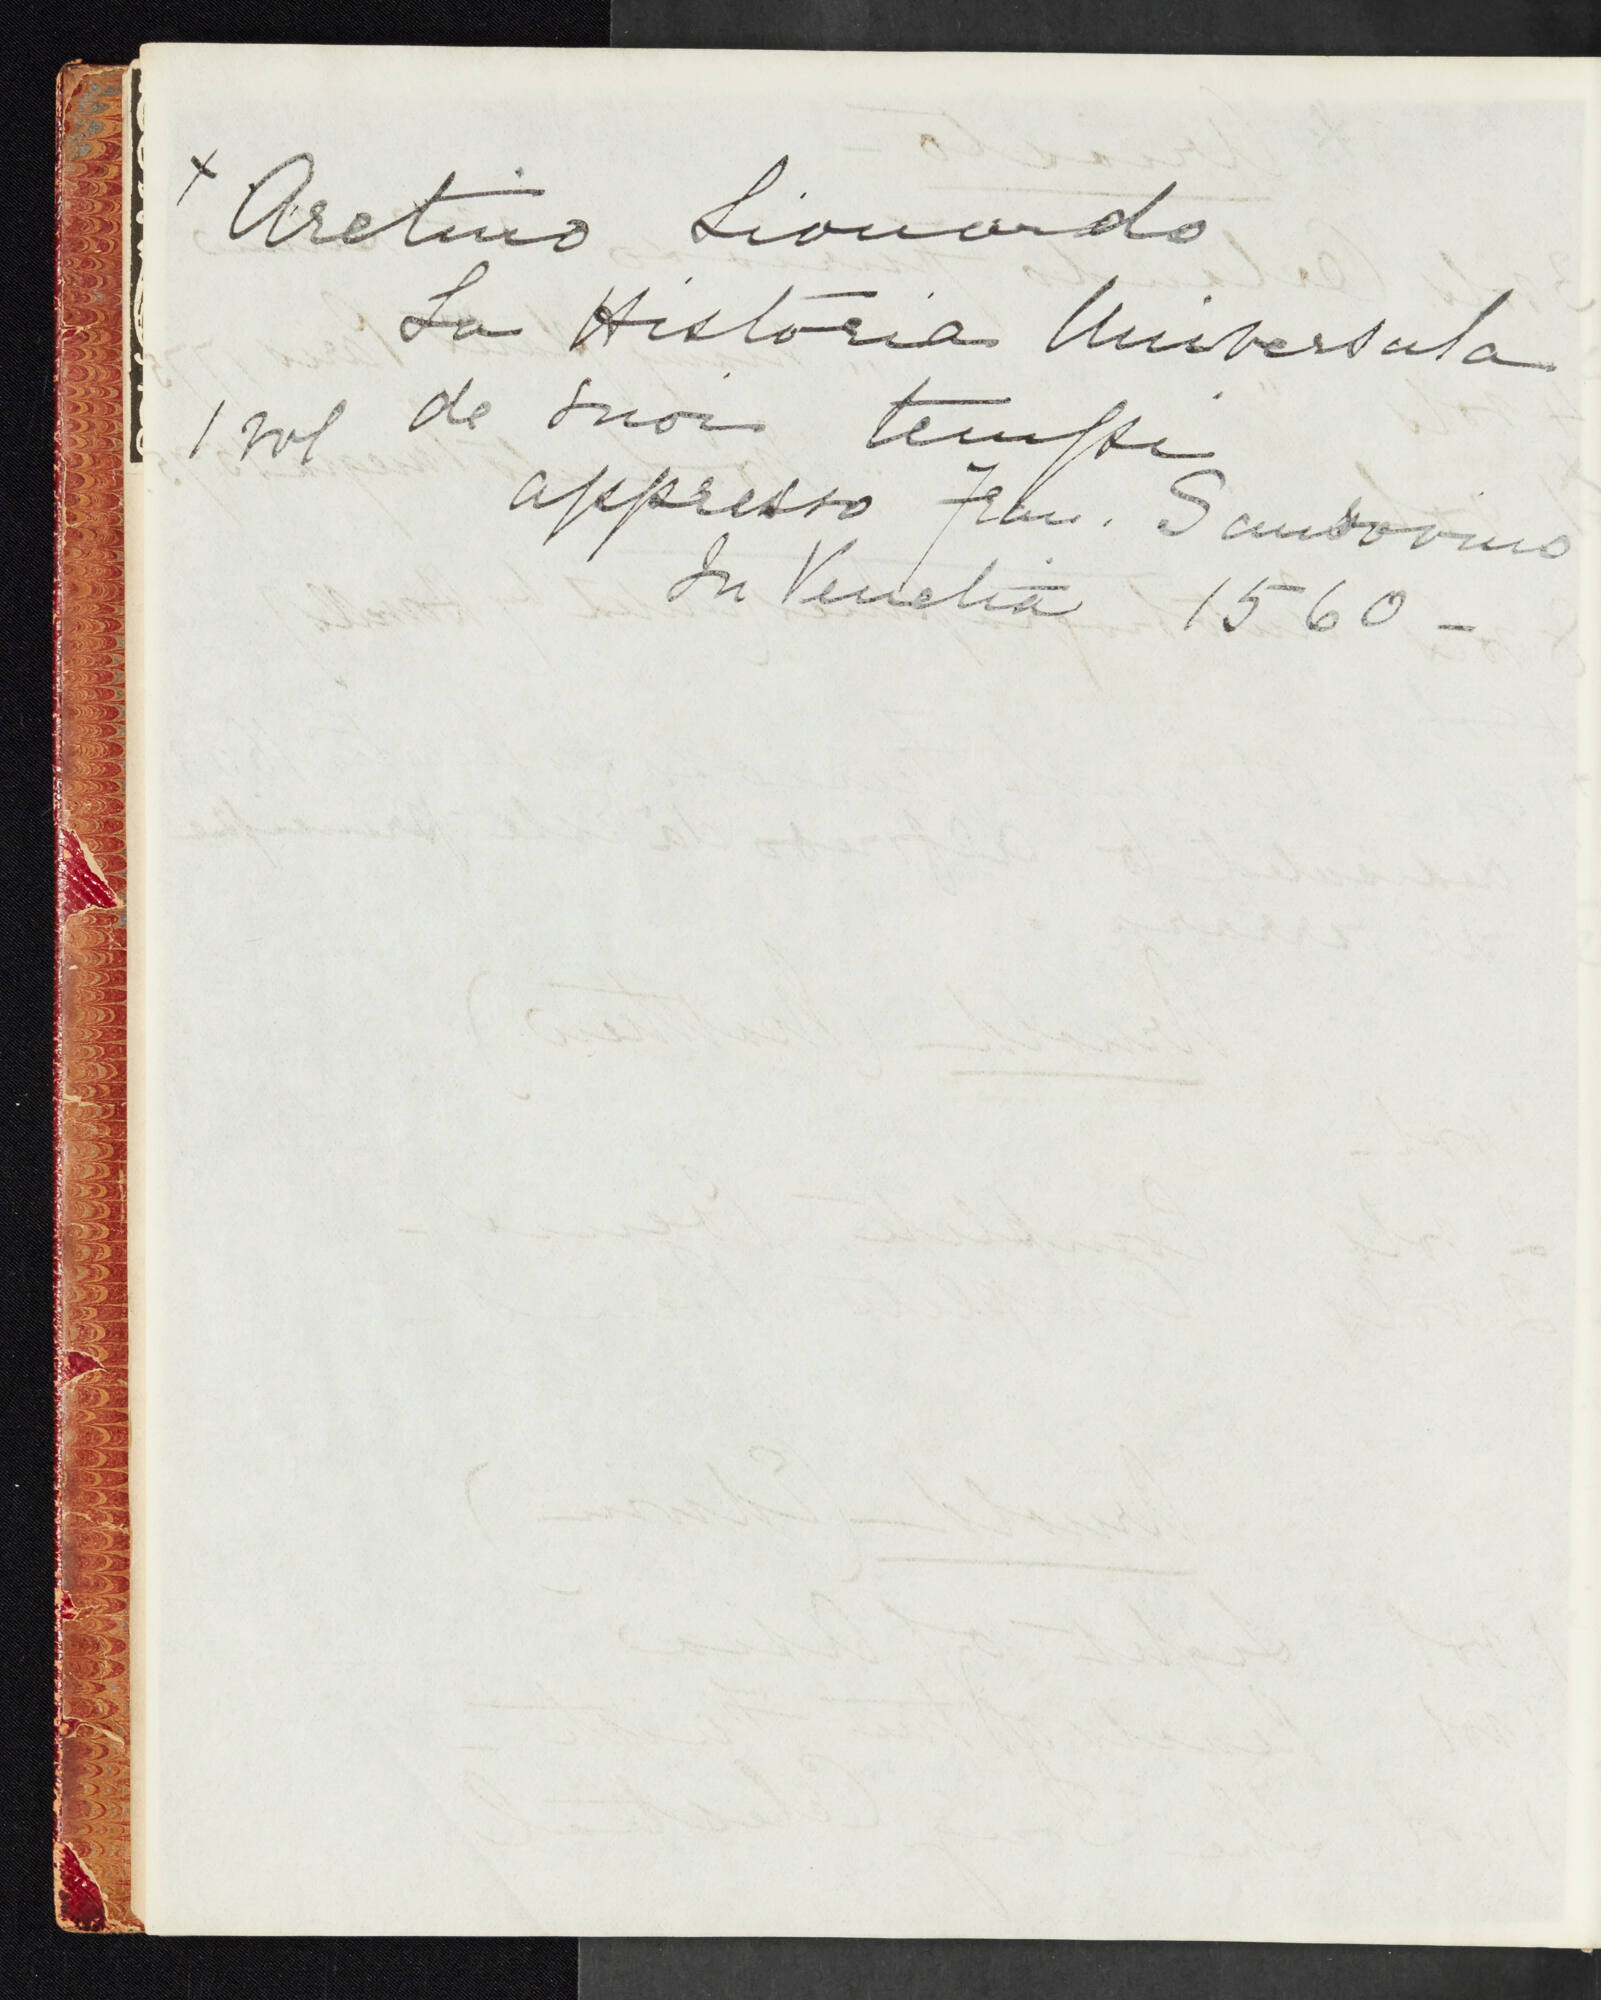 x Aretino Lionardo
La Historia Universala
1 vol de suoi tempi
appresso Fran. Sansovino
In Venetia 1560 -